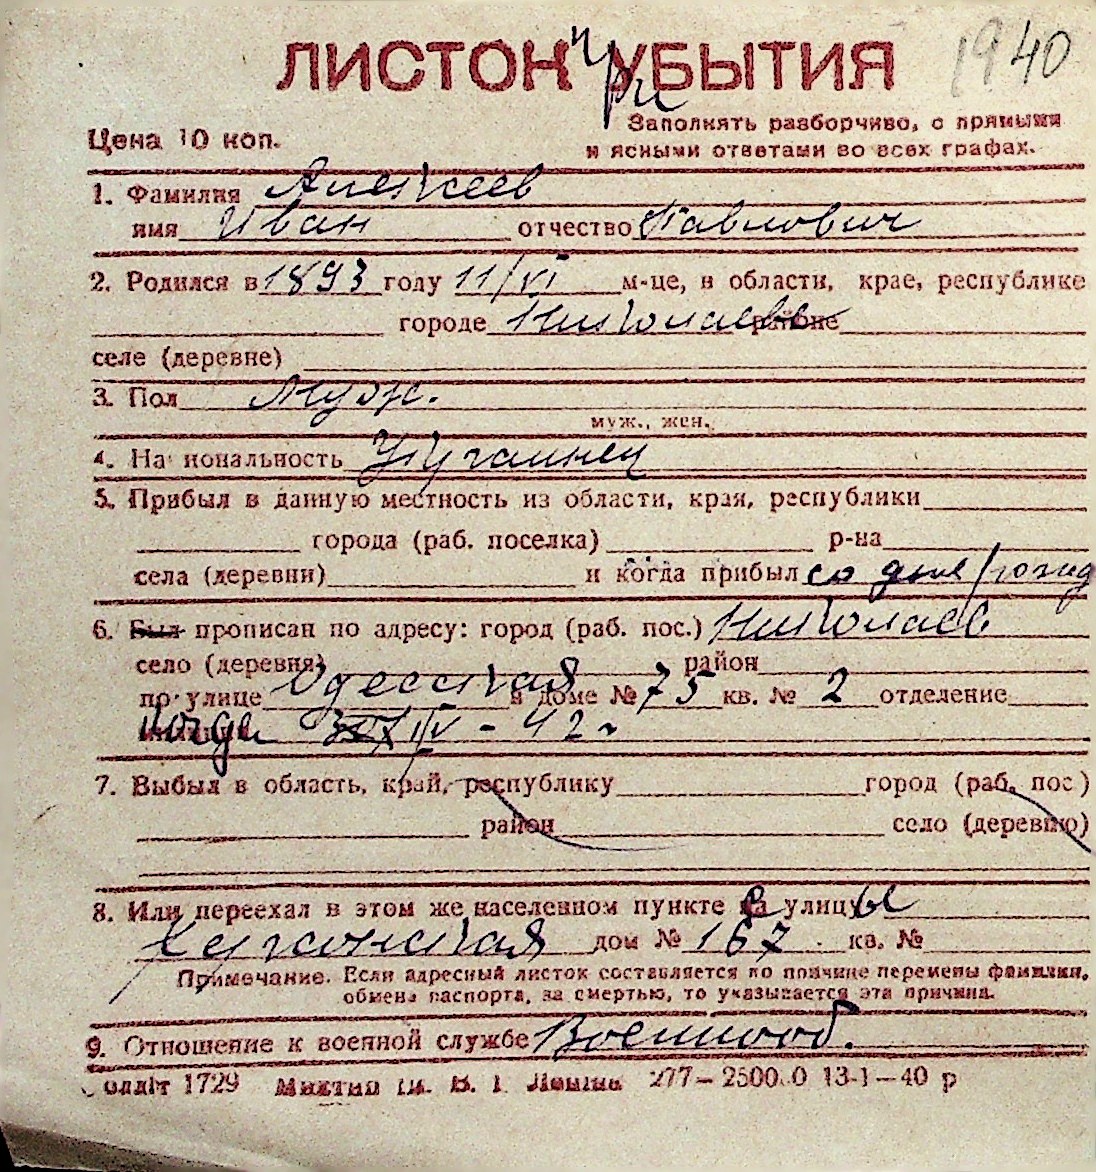 ЛИСТОК УБЫТИЯ
при
1940
Цена 10 коп.
Заполнять разборчиво, с прямыми
и ясными ответами во всех графах.
1. Фамилия Алексеев
имя Иван отчество Павлович
2. Родился в 1893 году 11/VI м-це, в области, крае, республике
городе Николаеве районе
селе (деревне)
3. Пол Муж.
муж., жен.
4. Национальность Украинец
5. Прибыл в данную местность из области, края, республики
города (раб. поселка) р-на
села (деревни) и когда прибыл со дня рожд
6. Был прописан по адресу: город (раб. пос.) Николаев
село (деревня) район
по улице Одесская в доме № 75 кв. № 2 отделение
когда IV - 42 г
7. Выбыл в область, край, республику город (раб. пос)
район село (деревню)
8. Или переехал в этом же населенном пункте с улицы
Херсонская дом № 167 кв. №
Примечание. Если адресный листок составляется по причине перемены фамилии,
обмена паспорта, за смертью, то указывается эта причина.
9. Отношение к военной службе Военнооб.
олліт 1729 В. І. Леніна 277—2500.0 13-1—40 р